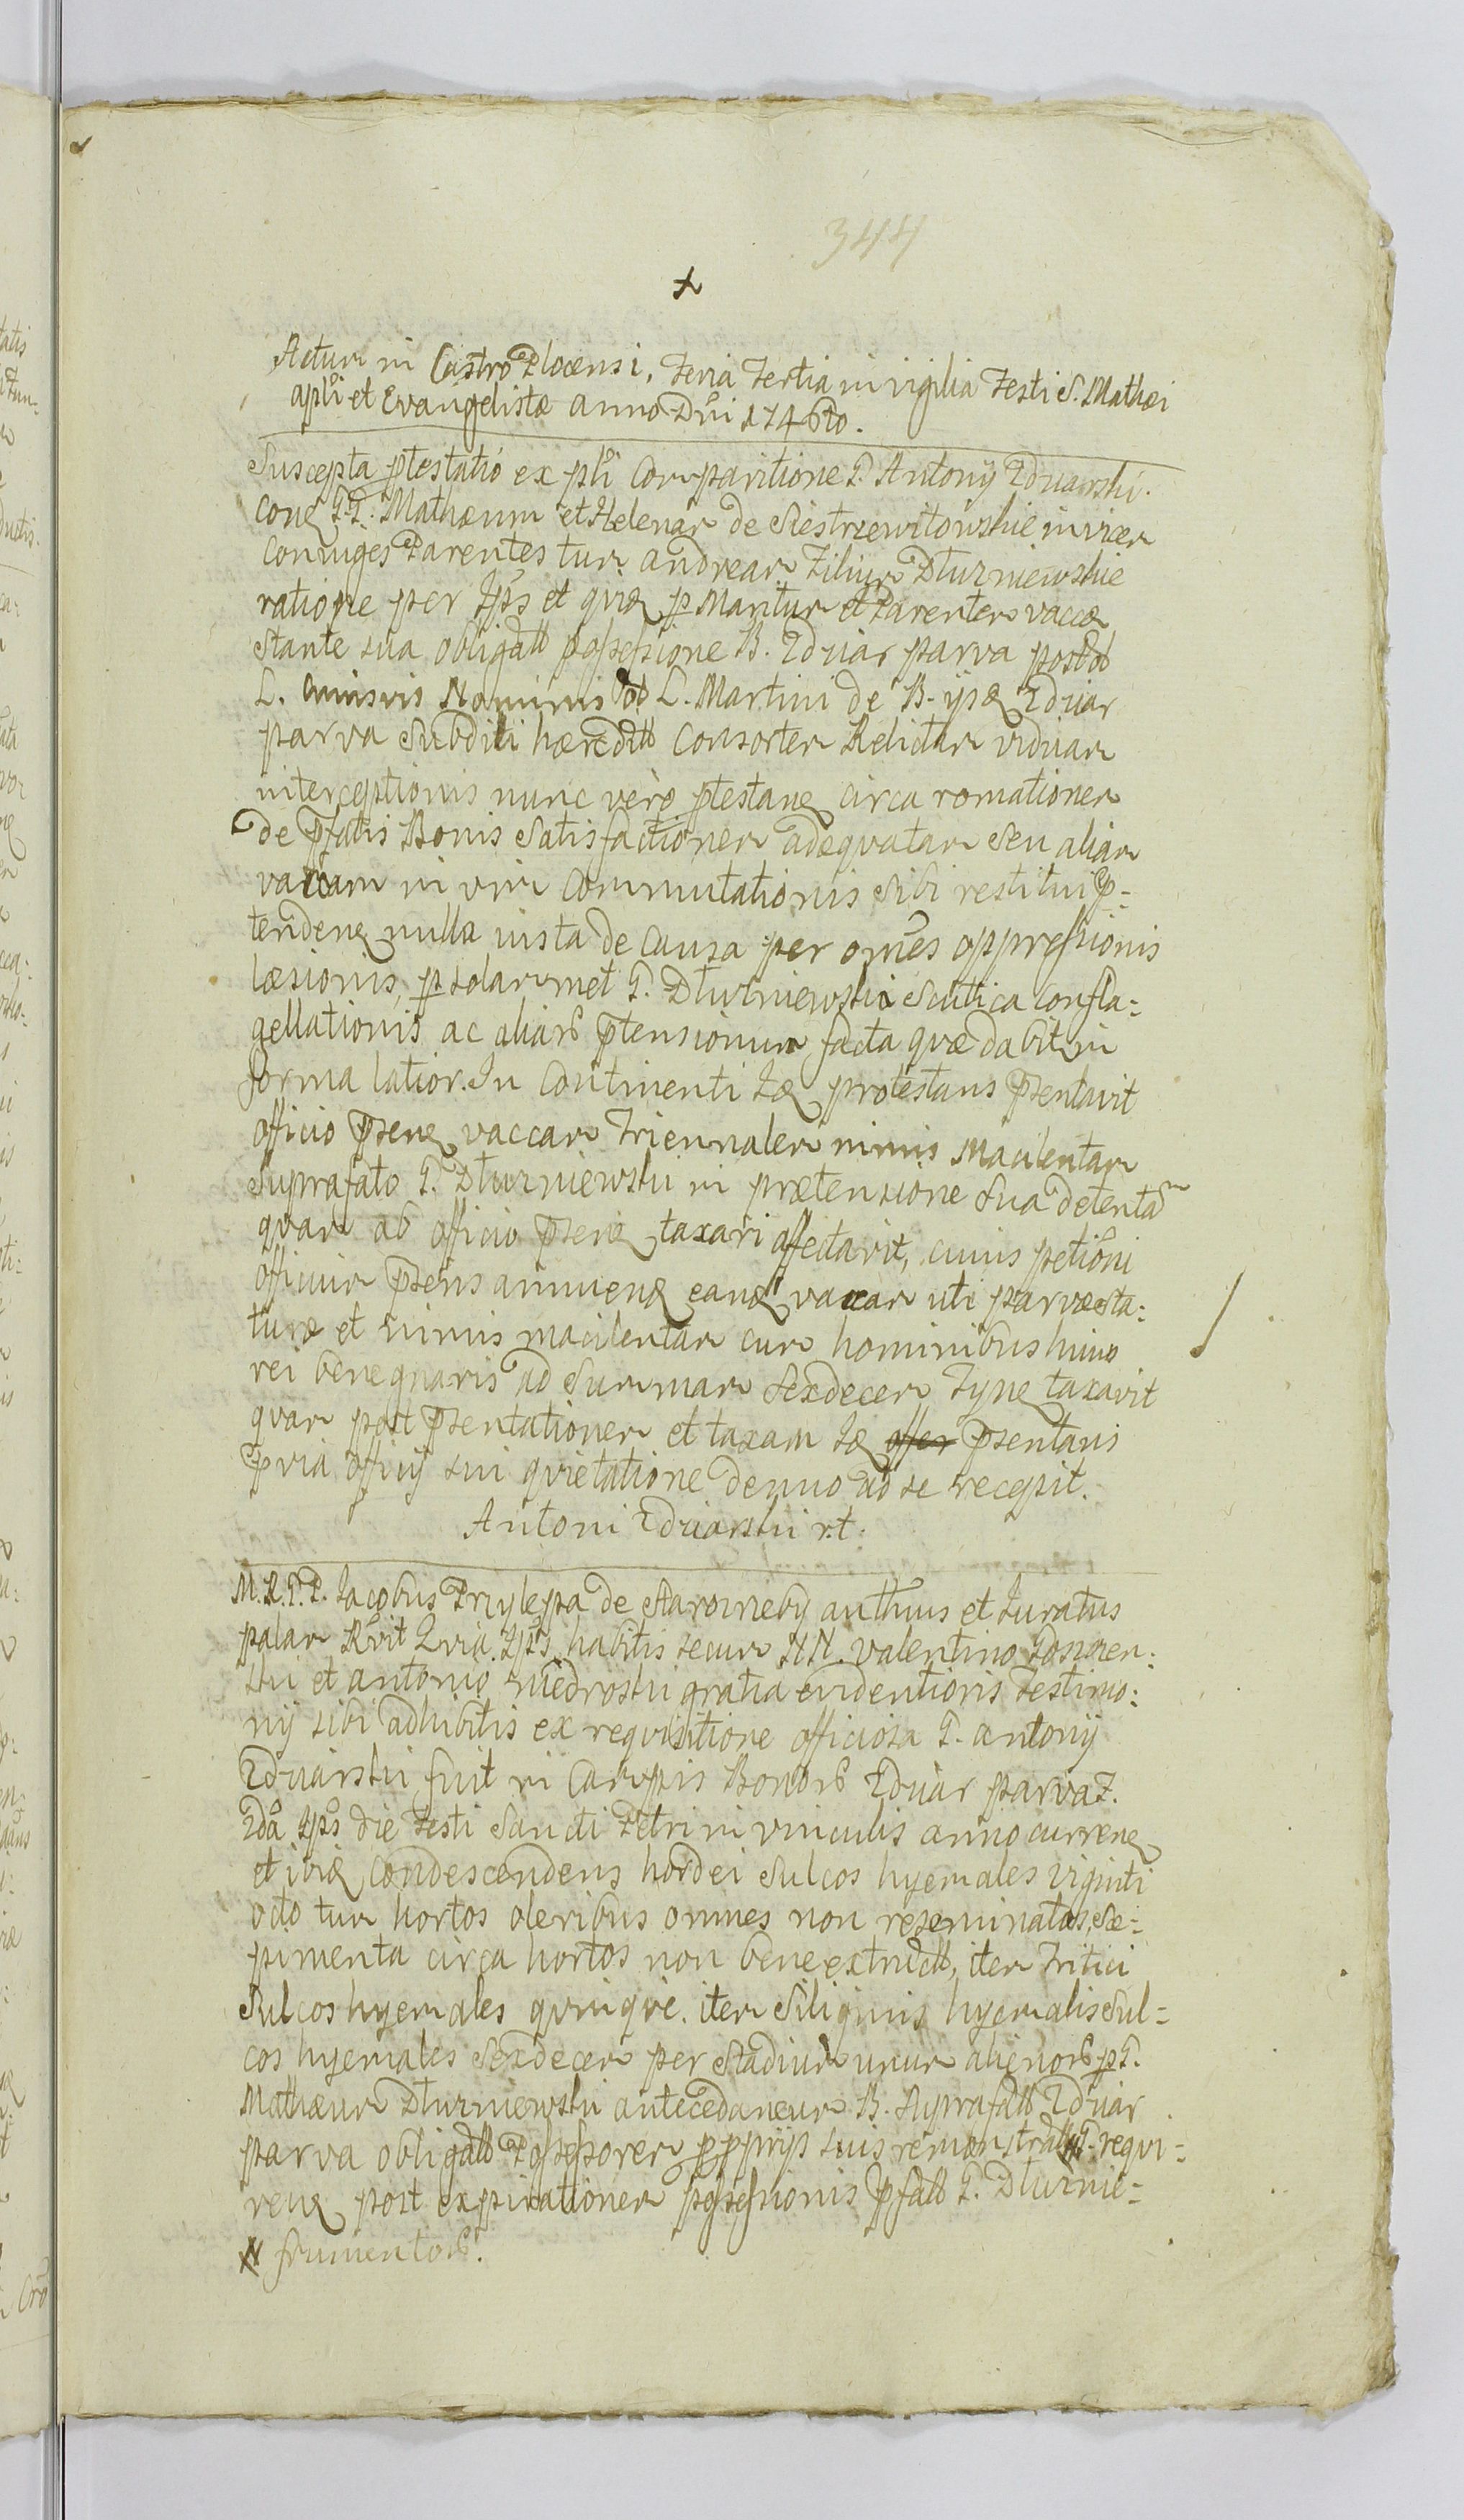 344
Actum in Castro Plocensi, Feria Tertia in vigilia Festi S. Mathæi
Apłi et Evangelistæ Anno Dni 1746to.
Suscepta ptestatio ex płi Comparitione G. Antonij Zdwarski.
G.G. Mathæum et Helenam de Siestrzewitowskie invicem
Coniuges Parentes tum Andream Filium Dłuzniewskie
ratione per Ipś et Maritum et Parentem vaccæ
stante sua obligatt possessione B. Zdwar parva
L. Cuiusvis Nominis L. Martini de B. Zdwar
parva Subditi hæreditt Consortem Relictam viduam
interceptionis nunc vero ptestanq circa
de pfatis Bonis Satisfactionem adequatam Seu aliam
vaccam in vim Commutationis Sibi restitui p-
tendenq nulla iusta de Causa per omes oppressionis
læsionis, p solammet G. Dłuzniewski Scutica Confla=
gellationis ac aliarb ptensionum facta quæ dabit in
forma latior. In Continenti Iq protestans psentavit
Officio psenq vaccam Triennalem nimis Macilentam
Suprafato G. Dłuzniewski in prætensione Sua detentam
quam ab officio psenq taxari affectavit, cuius petioni
Officium psens annuenq eanq vaccam uti parvæ sta=
turæ et nimis macilentam cum hominibus huius
rei bene gnaris ad Summam Sexdecem Tynq taxavit
quam post psentationem et taxam Iq offer psentans
pvia officij sui quietatione denuo ad se recepit.
Antoni Zdwarski r.t.
M.R.G.P. Jacobus Przylepa de Staroineby authus et Iuratus
palam Rvit Quia Ipś habitis secum NN. Valentino
ski et antonio Niedroski gratia evidentioris Testimo=
nij sibi adhibitis ex requisitione officiosa G. antonij
Zdwarski fuit in Campis Bonorb Zdwar parva F.
2da Ipś die Festi Sancti Petri in vinculis anno currenq
et ibiq Condescendens hordei Sulcos hyemales viginti
octo tum hortos oleribus omnes non reseminatos, Sæ=
pimenta circa hortos non bene extructt, item Tritici
Sulcos hyemales quinque. item Siliginis hyemalis Sul=
cos hyemales Sexdecem per Stadium unum alienorb p G.
Mathæum Dłuzniewski antecedaneum B. Suprafatt Zdwar
parva obligatt Possessorem p pprijs suis remonstratt requi=
renq post expirationem possessionis pfatt G. Dłuznie=
# frumentorb.